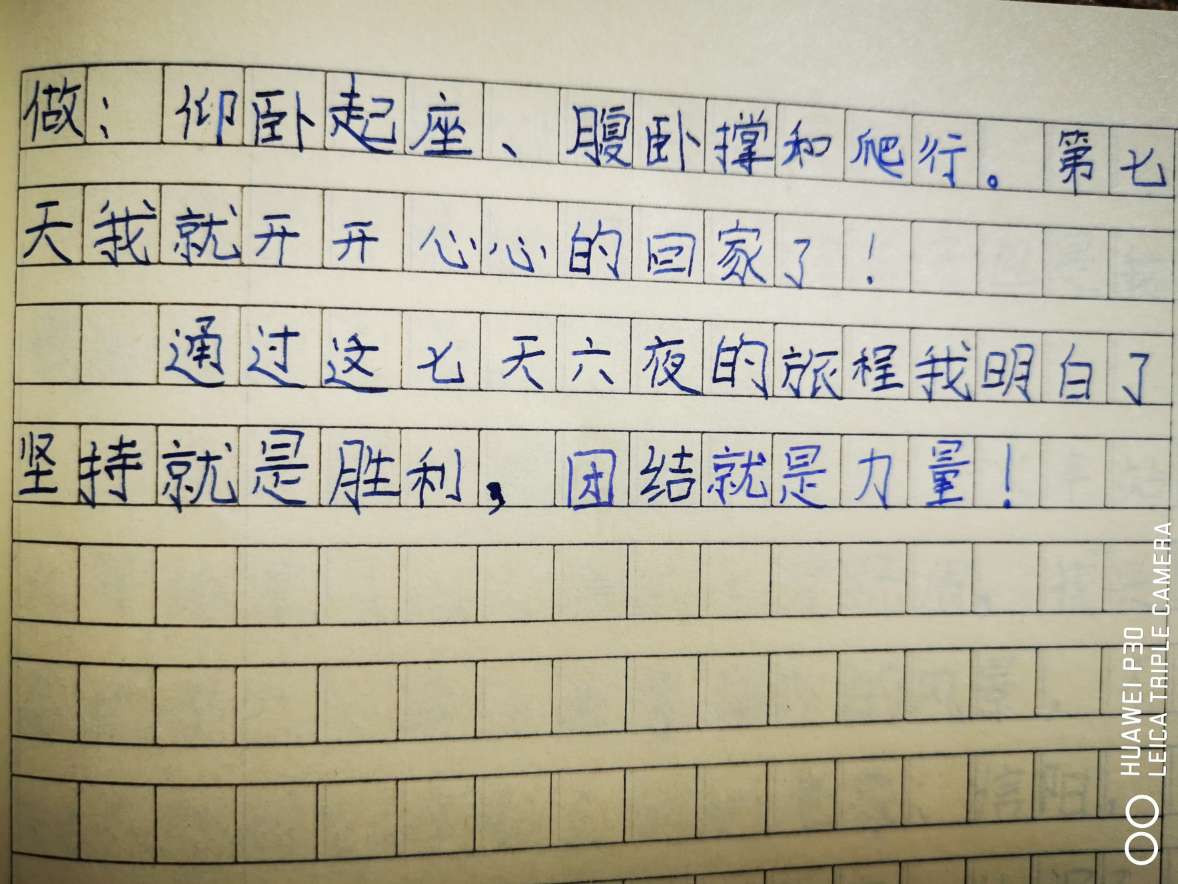 做：仰卧起座、腹卧撑和爬行。第七
天我就开开心心的回家了！
通过这七天六夜的旅程我明白了
坚持就是胜利，团结就是力量！
HUAWEI P30
LEICA TRIPLE CAMERA